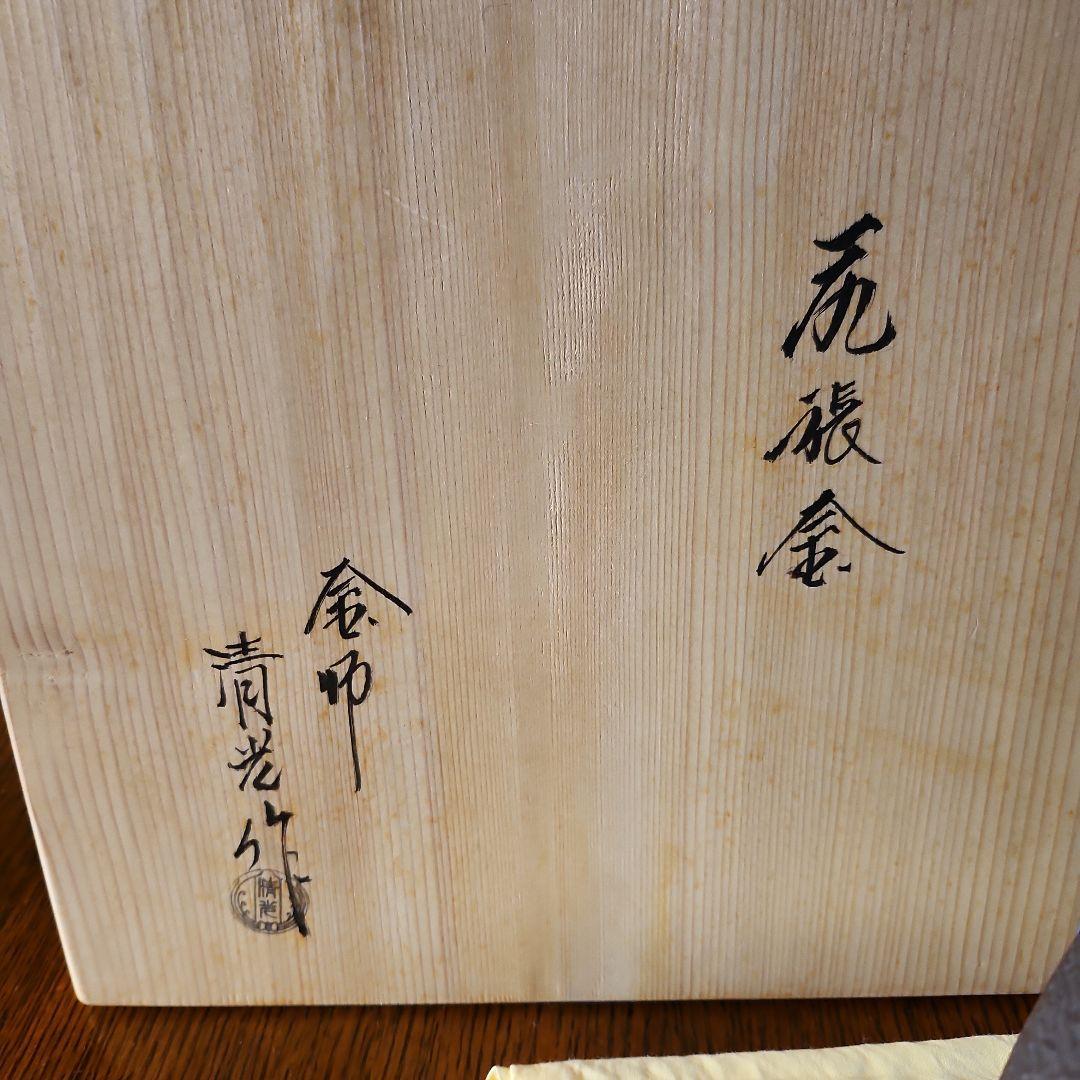 尻張釜
釜師
清光作
清光